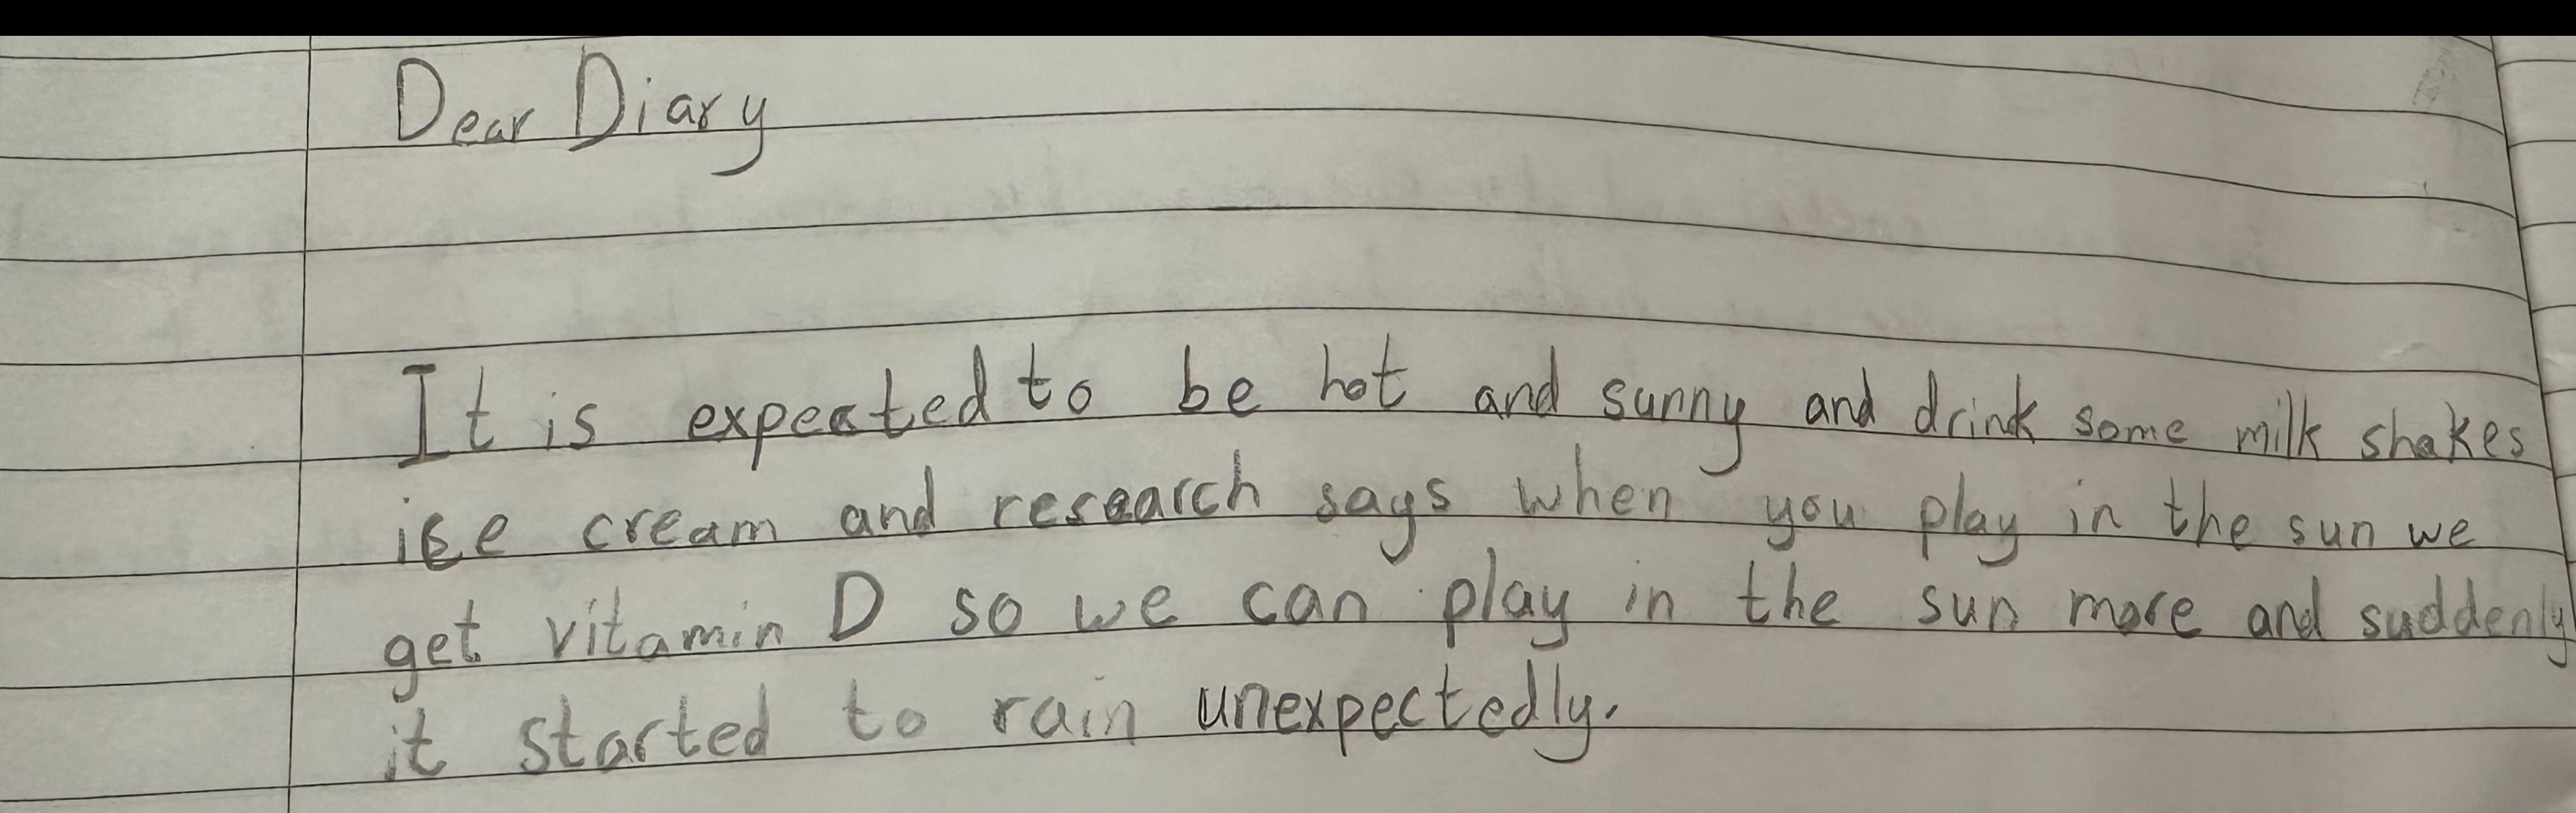 Dear Diary
It is expected to be hot and sunny and drink some milk shakes
ice cream and research says when you play in the sun we
get vitamin D so we can play in the sun more and suddenly
it started to rain unexpectedly.